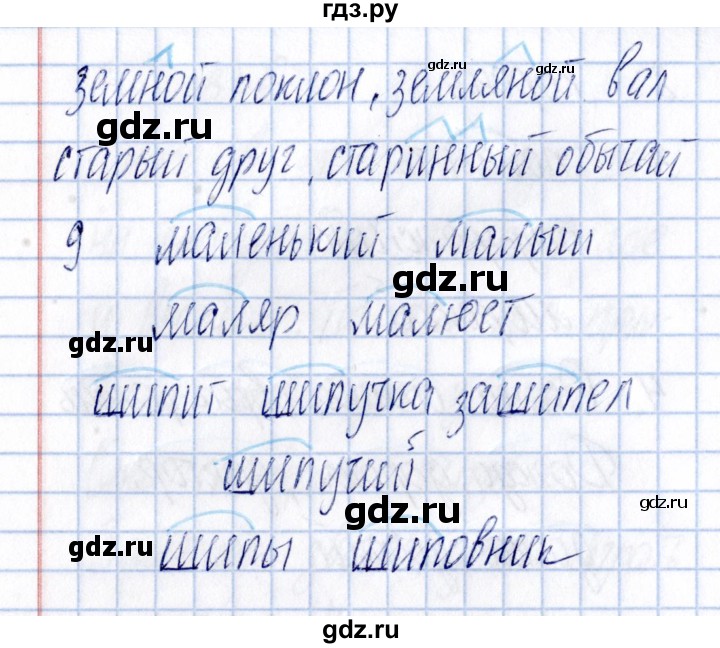 гдз.ру
земной поклон, земляной вал
gdz.ru
gdz.ru
старый друг, старинный обычай
9 маленький малыш
gdz.ru
маляр малюет
gdz.ru
шипит шипучка зашипел
шипучий
gdz.ru
gdz.ru
gdz.ru
шипы шиповник
gdz.ru